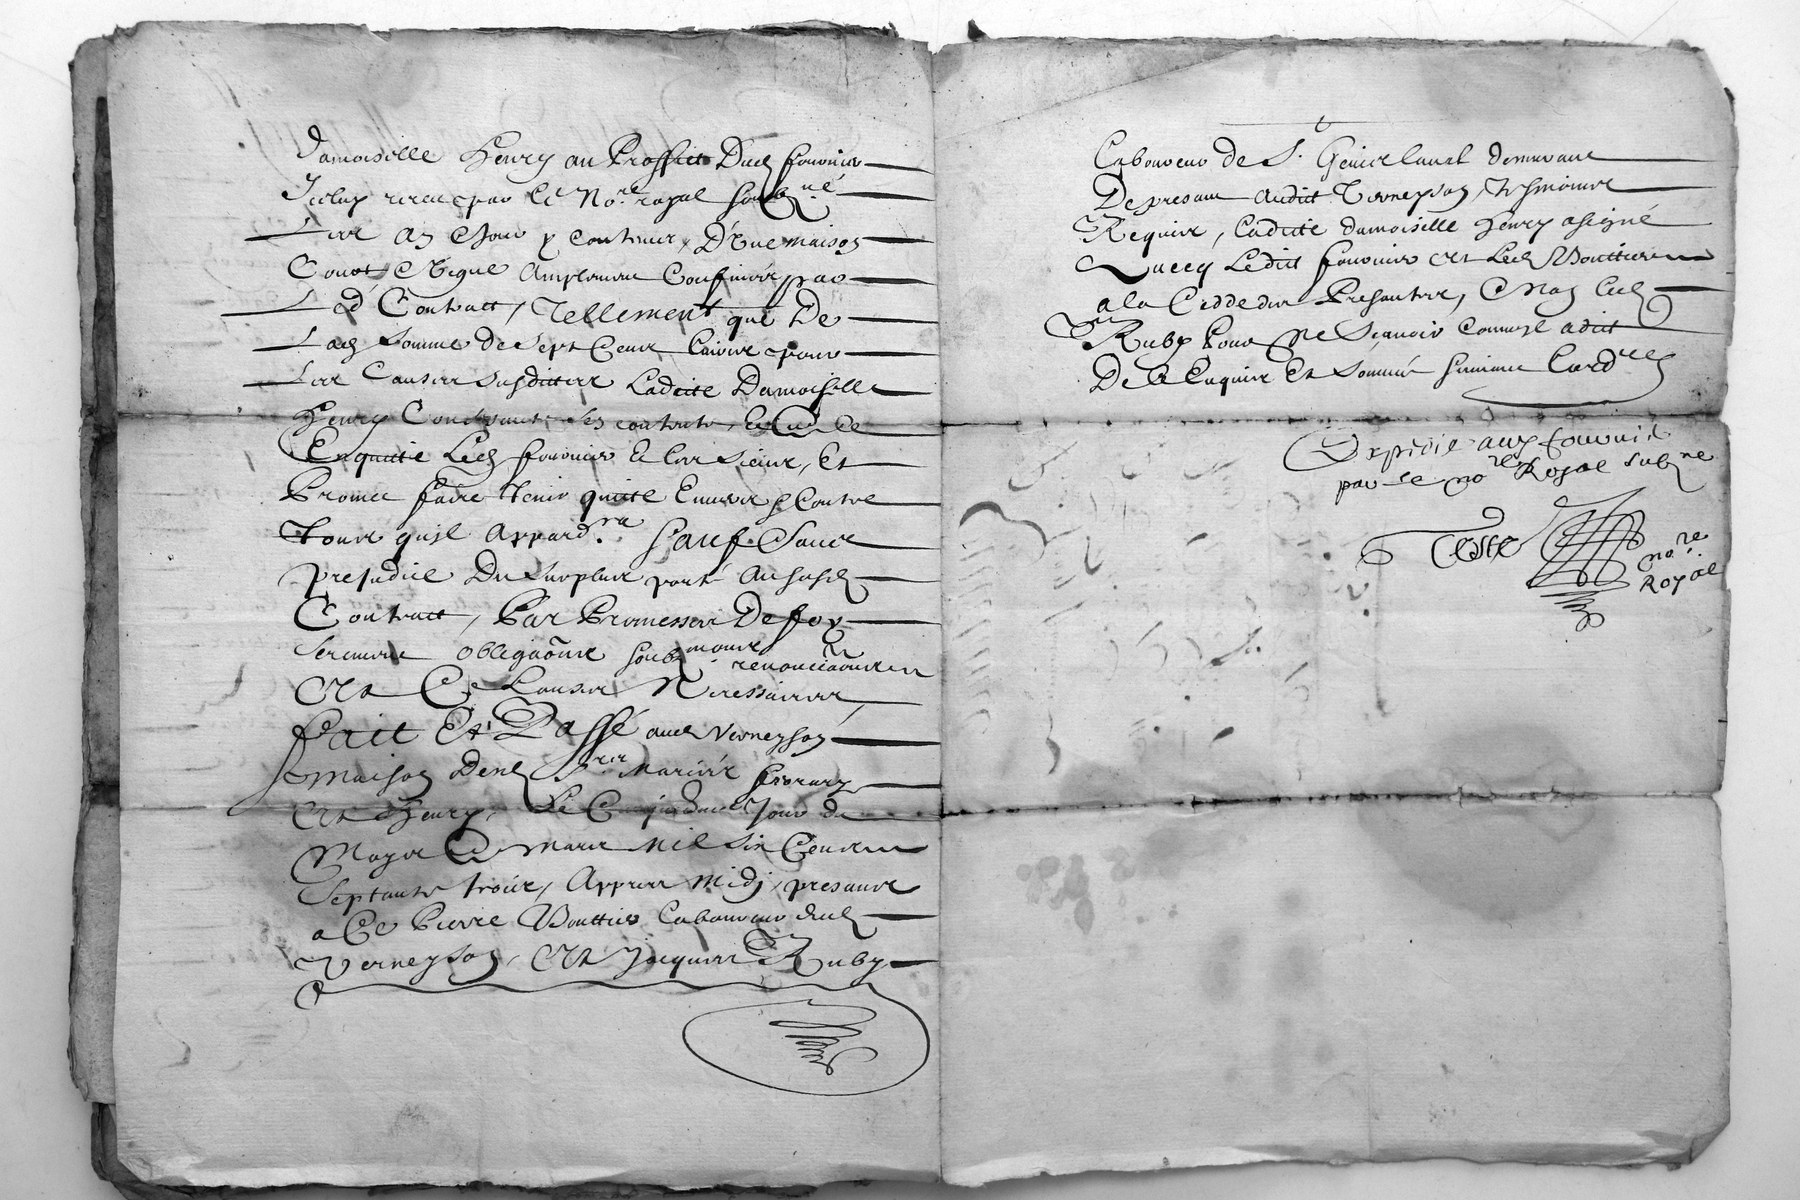 damoiselle henry au Proffict Dud fournier
Iceluy receu par le No.re royal soubz.né
Les an Jour y contenus D'Une maison
Court Vigne Amplement Confinées par
Led Contract, Tellement que De
Lad Somme de Sept Cens Livres pour
Les Causes Susdittes Ladcite Damoiselle
Henry Contente
Enquitte Led fournier & les Siens, Et
Promet faire tenir quicte Envers & Contre
Tous quil Appard.ra Sauf & Sans
prejudice Du Surplus porté Aususd
Contract, Par Promesses De foy
Serment obligaõns soubzmons
renonciaõns
Et Clauses Necessaires
fait Et Passé aud Verneyson
maison Desd S.rs Mariés
Et Henry, Le Cinquiesme Jour du
Moys de Mars Mil Six Cens
Septante trois, Appres Midj, presans
a Ce Pierre Bouttier Laboureur dud
Verneyson, Et Jacques Ruby
Laboureur de S.t Genis Laval demeurant
De presant Audit Verneyson, tesmoins
Requis, Ladicte damoiselle Henry a signé
Avecq Ledit fournier Et Led Bouttier
a la Cedde des Presantes, & Non led
Ruby Pour Ne Scavoir Comme a dit
De ce Enquis Et Sommé suivant Lord.ce
Expedié aux fournier
par le no.re Royal subz.né
Teste
no.re
Royal